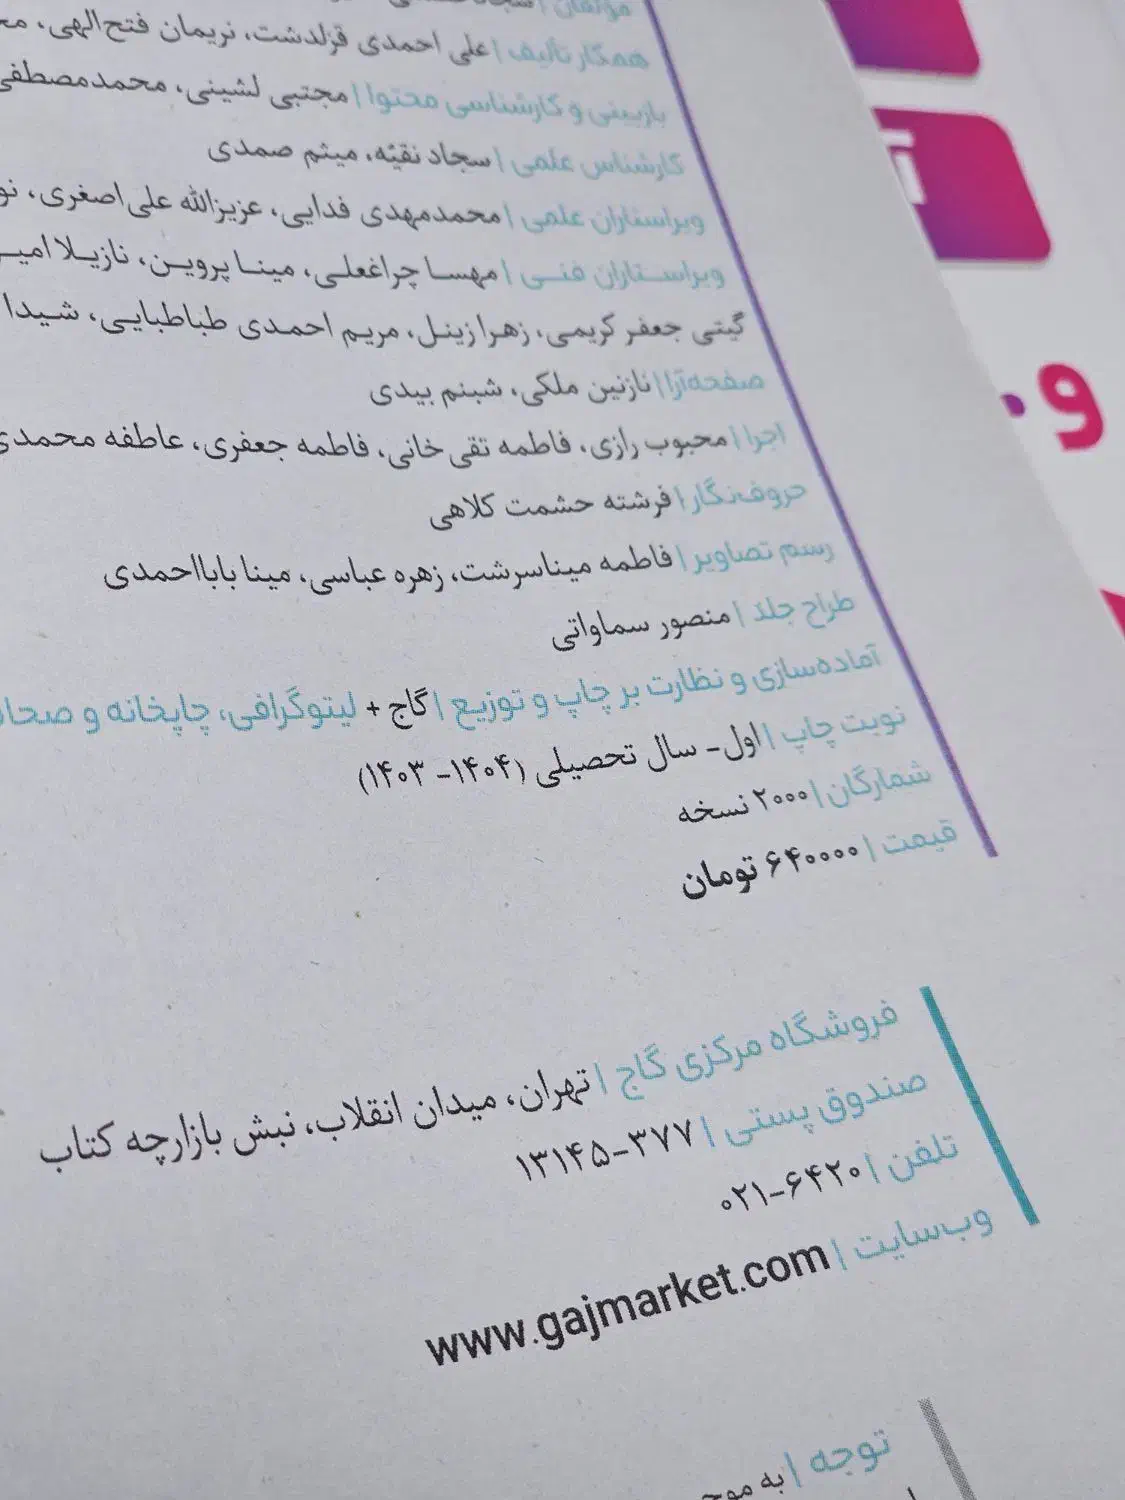 مؤلفان |
همکار تألیف | علی احمدی قزلدشت، نریمان فتح‌الهی،
بازبینی و کارشناسی محتوا | مجتبی لشینی، محمدمصطفی
کارشناس علمی | سجاد نقیّه، میثم صمدی
ویراستاران علمی | محمدمهدی فدایی، عزیزالله علی‌اصغری،
ویراستاران فنی | مهسا چراغعلی، مینا پروین، نازیلا
گیتی جعفر کریمی، زهرا زینل، مریم احمدی طباطبایی، شیدا
صفحه‌آرا | نازنین ملکی، شبنم بیدی
اجرا | محبوب رازی، فاطمه تقی خانی، فاطمه جعفری، عاطفه محمدی
حروف‌نگار | فرشته حشمت کلاهی
رسم تصاویر | فاطمه میناسرشت، زهره عباسی، مینا بابااحمدی
طراح جلد | منصور سماواتی
آماده‌سازی و نظارت بر چاپ و توزیع | گاج + لیتوگرافی، چاپخانه و
نوبت چاپ | اول- سال تحصیلی (۱۴۰۴- ۱۴۰۳)
شمارگان | ۲۰۰۰ نسخه
قیمت | ۶۴۰۰۰۰ تومان
فروشگاه مرکزی گاج | تهران، میدان انقلاب، نبش بازارچه کتاب
صندوق پستی | ۳۷۷-۱۳۱۴۵
تلفن | ۶۴۲۰-۰۲۱
وب‌سایت | www.gajmarket.com
توجه | به